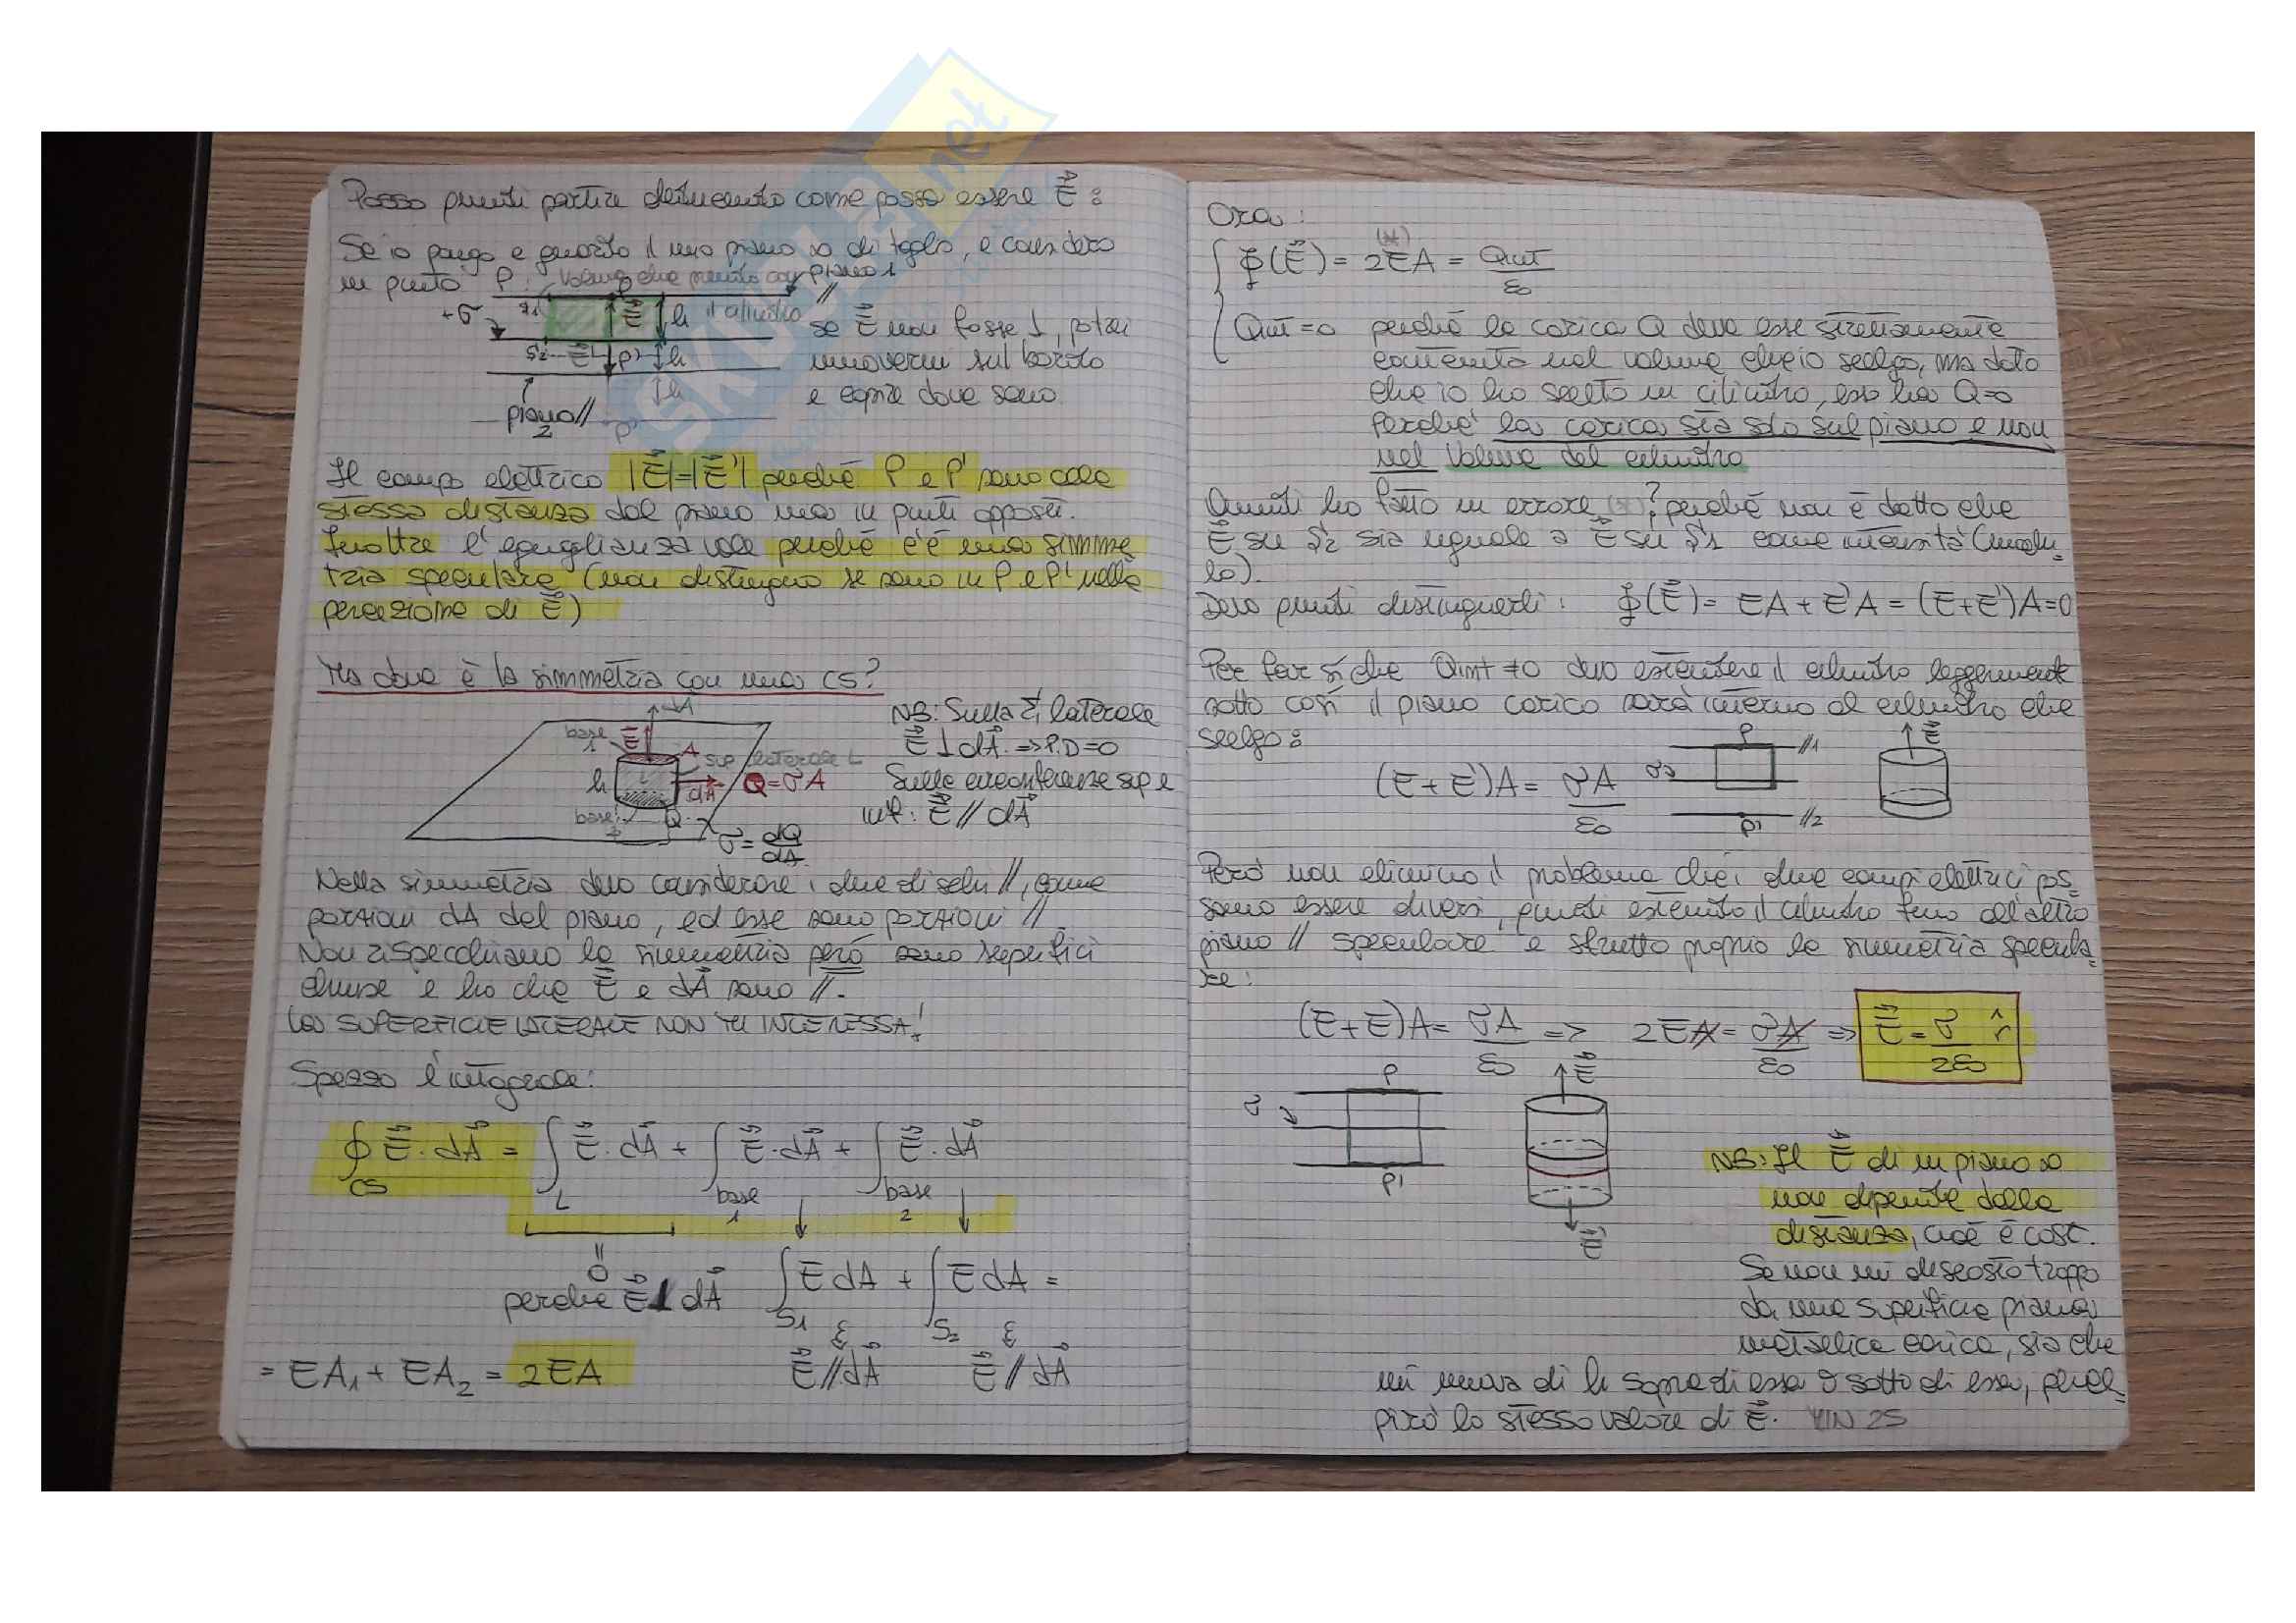 Posso quindi partire dicendo come possa essere E⃗ :
Se io pongo e guardo il mio piano ∞ di taglio, e considero
un punto P:
volume che prendo con il cilindro
piano 1 //
+σ
S1
E⃗
h
S2
E⃗
P'
h
h
piano // 2
P'
se E⃗ non fosse ⊥, potrei
muovermi sul bordo
e capire dove sono
Il campo elettrico |E⃗|=|E⃗'| perché P e P' sono alla
stessa distanza dal piano ma in punti opposti.
Inoltre l'eguaglianza vale perché c'è una simme
tria speculare (non distinguo se sono in P e P' nella
percezione di E⃗)
Ma dove è la simmetria con una CS?
dA⃗
base 1
E⃗
A
sup laterale L
h
dA⃗
Q=σA
base 2
Q
σ=dQ/dA
NB: Sulla Σ laterale
E⃗ ⊥ dA⃗ => P.D=0
Sulle circonferenze sup e
inf: E⃗ // dA⃗
Nella simmetria devo considerare i due dischi //, come
porzioni dA del piano, ed esse sono porzioni //
Non rispecchiano la simmetria però sono superfici
chiuse e ho che E⃗ e dA⃗ sono //.
LA SUPERFICIE LATERALE NON MI INTERESSA!
Spezzo l'integrale:
∮CS E⃗·dA⃗ = ∫L E⃗·dA⃗ + ∫base 1 E⃗·dA⃗ + ∫base 2 E⃗·dA⃗
= 0
perché E⃗ ⊥ dA⃗
∫S1 E dA + ∫S2 E dA =
E⃗ // dA⃗
E⃗ // dA⃗
= EA1 + EA2 = 2EA
Ora:
Φ(E⃗) = 2EA = Qint/ε0
(*)
Qint =0 perché la carica Q deve esse strettamente
contenuta nel volume che io scelgo, ma dato
che io ho scelto un cilindro, esso ha Q=0
perché la carica sta solo sul piano e non
nel volume del cilindro
Quindi ho fatto un errore (*)? perché non è detto che
E⃗ su S2 sia uguale a E⃗ su S1 come intensità (modu=
lo).
Devo quindi distinguerli: Φ(E⃗) = EA + E'A = (E+E')A=0
Per far sì che Qint ≠0 devo estendere il cilindro leggermente
sotto così il piano carico sarà interno al cilindro che
scelgo:
(E + E')A = σA/ε0
P
//1
σ
P'
//2
E⃗
Però non elimino il problema che i due campi elettrici pos=
sono essere diversi, quindi estendo il cilindro fino all'altro
piano // speculare e sfrutto proprio la simmetria specula=
re:
(E+E)A = σA/ε0 => 2EA = σA/ε0 => E⃗ = σ/2ε0 r̂
P
σ
P'
E⃗
E⃗
NB: Il E⃗ di un piano ∞
non dipende dalla
distanza, cioè è cost.
Se non mi discosto troppo
da una superficie piana
metallica carica, sia che
mi muova di h sopra di essa o sotto di essa, perce=
pirò lo stesso valore di E⃗. MIN 25